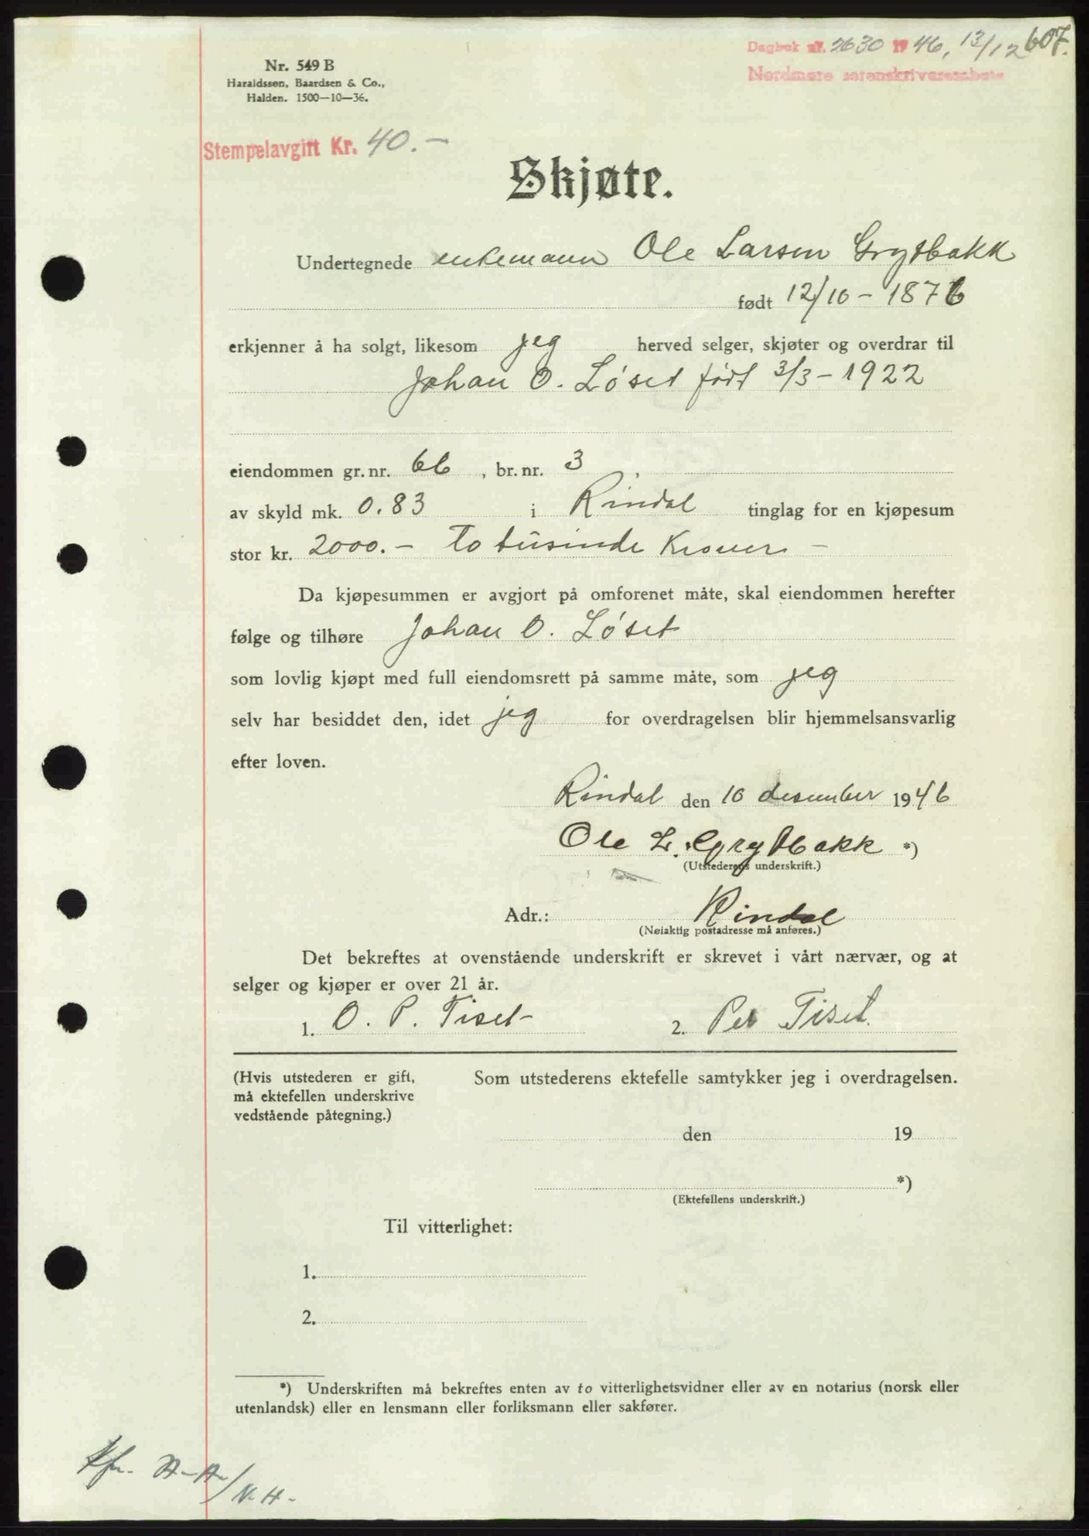 Dagbok nr. 2630 1946, 13/12 607.
Nordmøre sorenskriverembete
Nr. 549 B
Haraldssen, Baardsen & Co.,
Halden. 1500—10—36.
Stempelavgift Kr. 40.—
Skjøte.
Undertegnede enkemann Ole Larsen Grytbakk
født 12/10 - 1876
erkjenner å ha solgt, likesom jeg herved selger, skjøter og overdrar til
Johan O. Løset født 3/3 - 1922
eiendommen gr. nr. 66, br. nr. 3
av skyld mk. 0.83 i Rindal tinglag for en kjøpesum
stor kr. 2000.— To tusinde Kroner —
Da kjøpesummen er avgjort på omforenet måte, skal eiendommen herefter
følge og tilhøre Johan O. Løset
som lovlig kjøpt med full eiendomsrett på samme måte, som jeg
selv har besiddet den, idet jeg for overdragelsen blir hjemmelsansvarlig
efter loven.
Rindal den 10 desember 1946
Ole L. Grytbakk *)
(Utstederens underskrift.)
Adr.: Rindal
(Nøiaktig postadresse må anføres.)
Det bekreftes at ovenstående underskrift er skrevet i vårt nærvær, og at
selger og kjøper er over 21 år.
1. O. P. Tiset 2. Per Tiset.
(Hvis utstederen er gift, Som utstederens ektefelle samtykker jeg i overdragelsen.
må ektefellen underskrive
vedstående påtegning.)
den 19
*)
(Ektefellens underskrift.)
Til vitterlighet:
1.
2.
*) Underskriften må bekreftes enten av to vitterlighetsvidner eller av en notarius (norsk eller
utenlandsk) eller en lensmann eller forliksmann eller sakfører.
N.H.